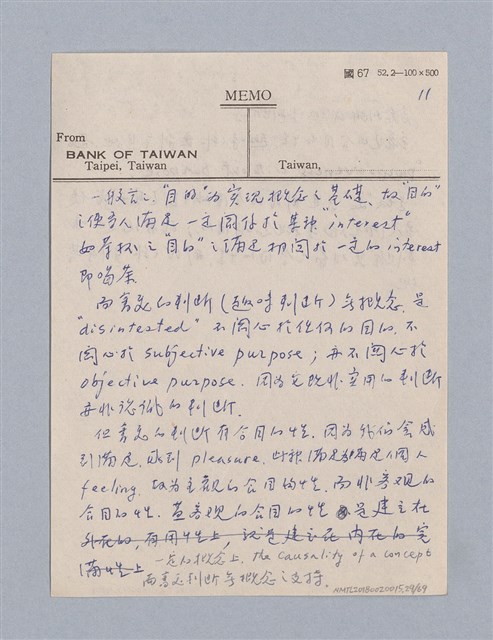 國 67 52.2—100×500
MEMO
11
From
BANK OF TAIWAN
Taipei, Taiwan
Taiwan,
一般言之，"目的"為實現概念之基礎，故"目的"
之使吾人滿足一定關係於某種"interest"。
如茶杯之"目的"之滿足相關於一定的interest
即喝茶。
而審美的判斷（趣味判斷）無概念，是
"disintested" 不關心於任何的目的，不
關心於 subjective purpose；亦不關心於
objective purpose. 因為它既非實用的判斷
亦非認識的判斷.
但審美的判斷有合目的性，因為我們會感
到滿足，感到 pleasure. 此種滿足為滿足個人
feeling, 故為主觀的合目的性，而非客觀的
合目的性. 蓋客觀的合目的性是建立在
外在的，有用性上，或是建立在內在的完
滿性上 一定的概念上，the causality of a concept
而審美判斷無概念之支持.
NMTL20180020015,29/69